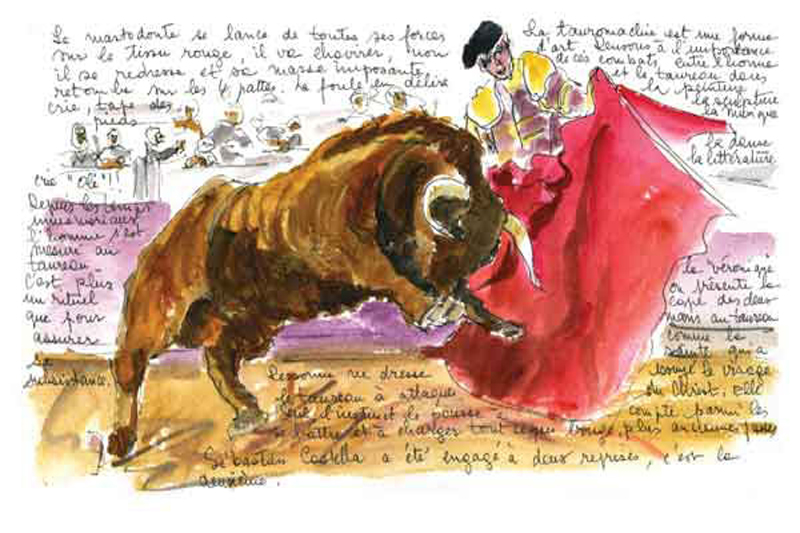 Le mastodonte se lance de toutes ses forces
sur le tissu rouge, il va chavirer, non
il se redresse et sa masse imposante
retombe sur les 4 pattes. La foule en délire
crie, tape des
pieds
crie "Olé"!!
Depuis les temps
immémoriaux
l'homme s'est
mesuré au
taureau.
C'est plus
un rituel
que pour
assurer
la
subsistance.
La tauromachie est une forme
d'art. Pensons à l'importance
de ces combats entre l'homme
et le taureau dans
la peinture
la sculpture
la musique
la danse
la littérature
la véronique
on présente la
cape des deux
mains au taureau
comme la
sainte qui a
essuyé le visage
du Christ. Elle
compte parmi les
plus anciennes passes
Personne ne dresse
le taureau à attaquer
seul l'instinct le pousse à
se battre et à charger tout ce qui bouge,
Sébastien Castella a été engagé à deux reprises, c'est la
deuxième.